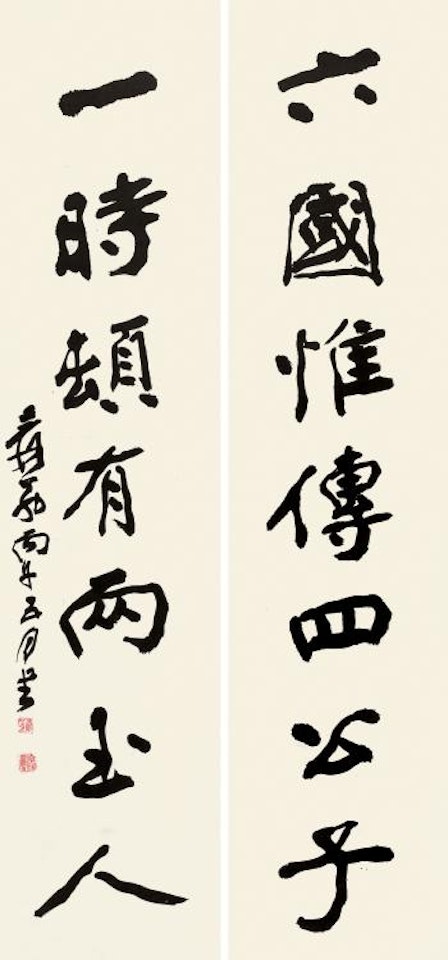 六國惟傳四公子
一時頓有兩玉人
丙午五月書